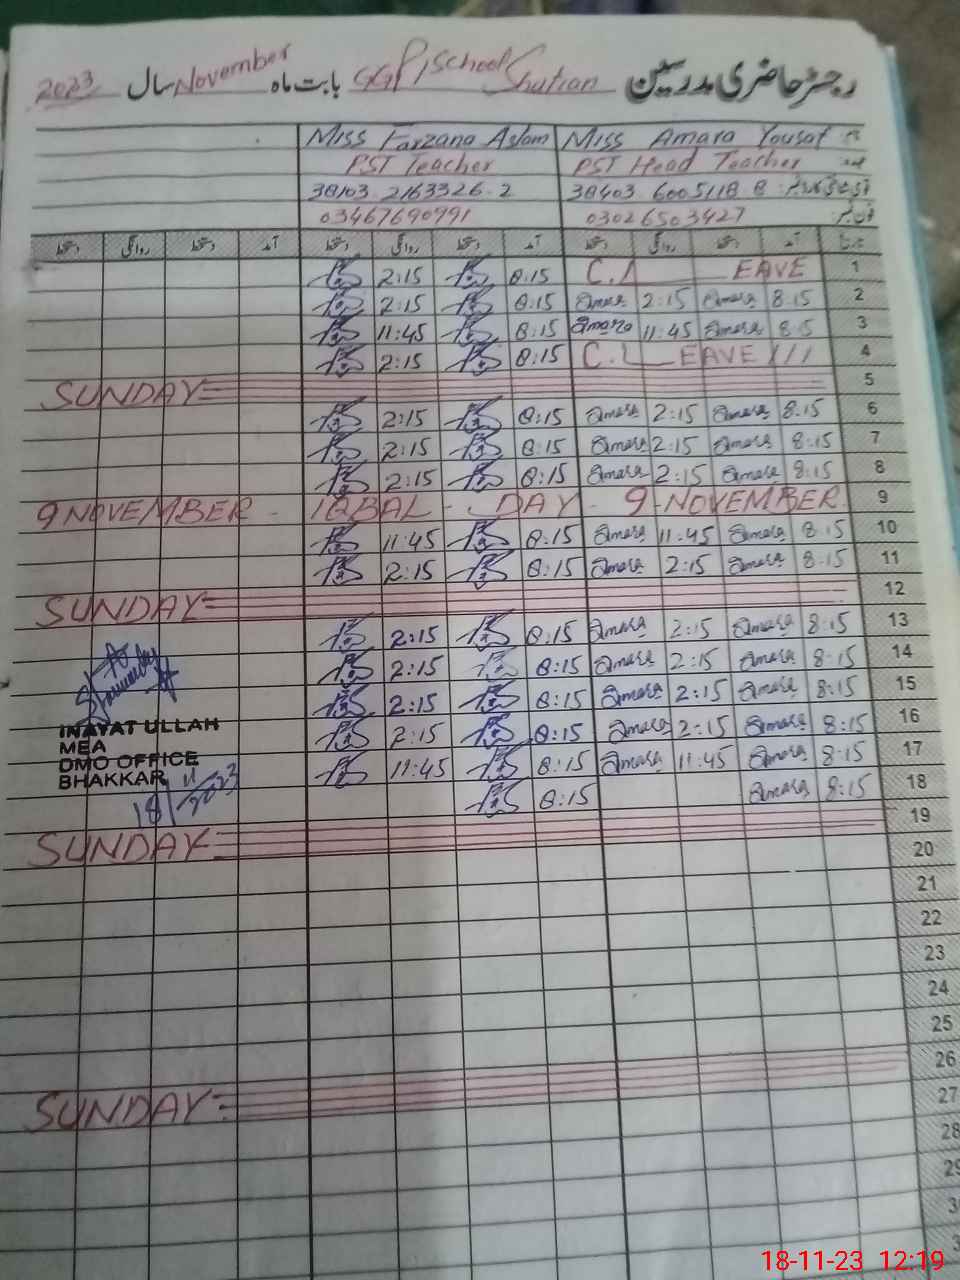 رجسٹر حاضری مدرسین GGP/School Shutian بابت ماہ November سال 2023
Miss Farzana Aslam Miss Amara Yousaf
PST Teacher PST Head Teacher
38103.2163326.2 38403.6005118.8
03467690991 03026503427 فون نمبر:
دستخط روانگی دستخط آمد دستخط روانگی دستخط آمد دستخط روانگی دستخط آمد
2:15 8:15 C.L EAVE 1
2:15 8:15 Amara 2:15 Amara 8:15 2
11:45 8:15 Amara 11:45 Amara 8:15 3
2:15 8:15 C.L EAVE 4
SUNDAY 5
2:15 8:15 Amara 2:15 Amara 8:15 6
2:15 8:15 Amara 2:15 Amara 8:15 7
2:15 8:15 Amara 2:15 Amara 8:15 8
9 NOVEMBER - IQBAL - DAY - 9 - NOVEMBER 9
11:45 8:15 Amara 11:45 Amara 8:15 10
2:15 8:15 Amara 2:15 Amara 8:15 11
SUNDAY 12
2:15 8:15 Amara 2:15 Amara 8:15 13
2:15 8:15 Amara 2:15 Amara 8:15 14
2:15 8:15 Amara 2:15 Amara 8:15 15
2:15 8:15 Amara 2:15 Amara 8:15 16
11:45 8:15 Amara 11:45 Amara 8:15 17
8:15 Amara 8:15 18
INAYAT ULLAH
MEA
DMO OFFICE
BHAKKAR
18/11/2023
SUNDAY 19
20
21
22
23
24
25
SUNDAY 26
27
28
29
18-11-23 12:19